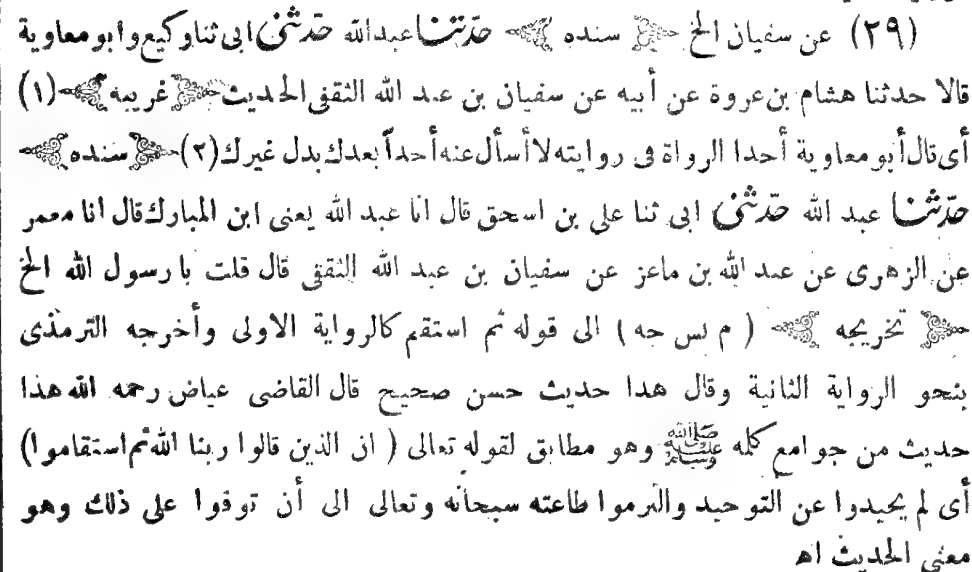 (٢٩) عن سفيان الخ سنده حدثنا عبدالله حدثنى ابى ثنا وكيع وابو معاوية
قالا حدثنا هشام بن عروة عن أبيه عن سفيان بن عبد الله الثقفى الحديث غريبه (١)
أى قال أبو معاوية أحدا الرواة فى روايته لا أسأل عنه أحداً بعدك بدل غيرك (٢) سنده
حدثنا عبد الله حدثنى ابى ثنا على بن اسحق قال انا عبد الله يعنى ابن المبارك قال انا معمر
عن الزهرى عن عبد الله بن ماعز عن سفيان بن عبد الله الثقفى قال قلت يا رسول الله الخ
تخريجه (م نس جه) الى قوله ثم استقم كالرواية الاولى وأخرجه الترمذى
بنحو الرواية الثانية وقال هدا حديث حسن صحيح قال القاضى عياض رحمه الله هذا
حديث من جوامع كله ﷺ وهو مطابق لقوله تعالى (ان الذين قالوا ربنا الله ثم استقاموا)
أى لم يحيدوا عن التوحيد والتزموا طاعته سبحانه وتعالى الى أن توفوا على ذلك وهو
معنى الحديث اه